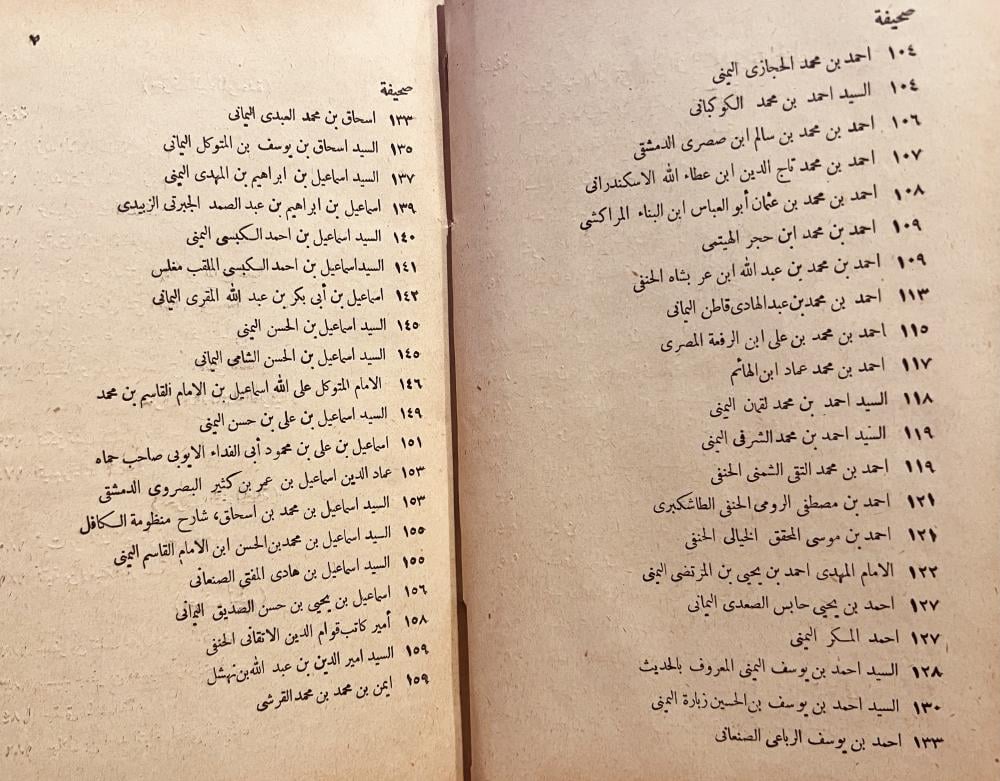 صحيفة
١٠٤ احمد بن محمد الحجازى اليمنى
١٠٤ السيد احمد بن محمد الكوكبانى
١٠٦ احمد بن محمد بن سالم ابن صصرى الدمشقى
١٠٧ احمد بن محمد تاج الدين ابن عطاء الله الاسكندرانى
١٠٨ احمد بن محمد بن عثمان أبو العباس ابن البناء المراكشى
١٠٩ احمد بن محمد ابن حجر الهيتمى
١٠٩ احمد بن محمد بن عبد الله ابن عر بشاه الحنفى
١١٣ احمد بن محمد بن عبد الهادى قاطن اليمانى
١١٥ احمد بن محمد بن على ابن الرفعة المصرى
١١٧ احمد بن محمد عماد ابن الهائم
١١٨ السيد احمد بن محمد لقمان اليمنى
١١٩ السيد احمد بن محمد الشرفى اليمنى
١١٩ احمد بن محمد التقى الشمنى الحنفى
١٢١ احمد بن مصطفى الرومى الحنفى الطاشكبرى
١٢١ احمد بن موسى المحقق الخيالى الحنفى
١٢٢ الامام المهدى احمد بن يحيى بن المرتضى اليمنى
١٢٧ احمد بن يحيى حابس الصعدى اليمانى
١٢٧ احمد المسكر اليمنى
١٢٨ السيد احمد بن يوسف اليمنى المعروف بالحديث
١٣٠ السيد احمد بن يوسف بن الحسين زبارة اليمنى
١٣٣ احمد بن يوسف الرباعى الصنعانى
٣
صحيفة
١٣٣ اسحاق بن محمد العبدى اليمانى
١٣٥ السيد اسحاق بن يوسف بن المتوكل اليمانى
١٣٧ السيد اسماعيل بن ابراهيم بن المهدى اليمنى
١٣٩ اسماعيل بن ابراهيم بن عبد الصمد الجبرتى الزبيدى
١٤٠ السيد اسماعيل بن احمد الكبسى اليمنى
١٤١ السيد اسماعيل بن احمد الكبسى الملقب مغلس
١٤٢ اسماعيل بن أبى بكر بن عبد الله المقرى اليمانى
١٤٥ السيد اسماعيل بن الحسن اليمنى
١٤٥ السيد اسماعيل بن الحسن الشامى اليمانى
١٤٦ الامام المتوكل على الله اسماعيل بن الامام القاسم بن محمد
١٤٩ السيد اسماعيل بن على بن حسن اليمنى
١٥١ اسماعيل بن على بن محمود أبى الفداء الايوبى صاحب حماه
١٥٣ عماد الدين اسماعيل بن عمر بن كثير البصروى الدمشقى
١٥٣ السيد اسماعيل بن محمد بن اسحاق، شارح منظومة الكافل
١٥٥ السيد اسماعيل بن محمد بن الحسن ابن الامام القاسم اليمنى
١٥٥ السيد اسماعيل بن هادى المفتى الصنعانى
١٥٦ اسماعيل بن يحيى بن حسن الصديق اليمانى
١٥٨ أمير كاتب قوام الدين الاتقانى الحنفى
١٥٩ السيد امير الدين بن عبد الله بن نهشل
١٥٩ ايمن بن محمد بن محمد القرشى